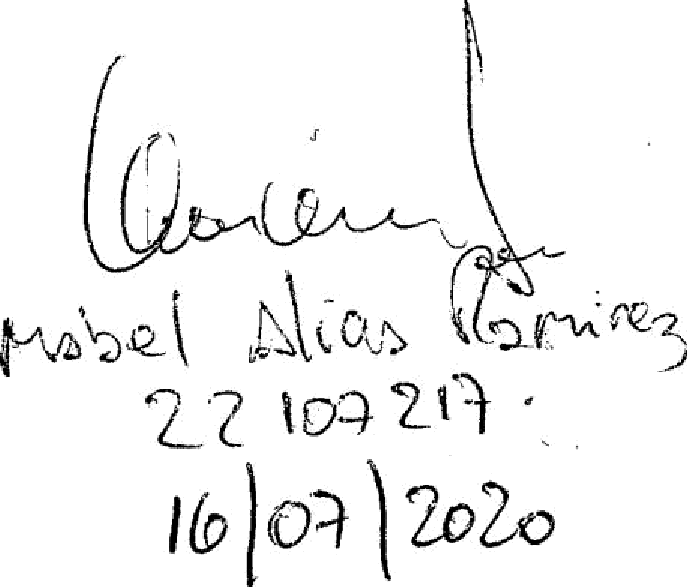 Mabel Alias Ramirez
22 107 217
16/07/2020